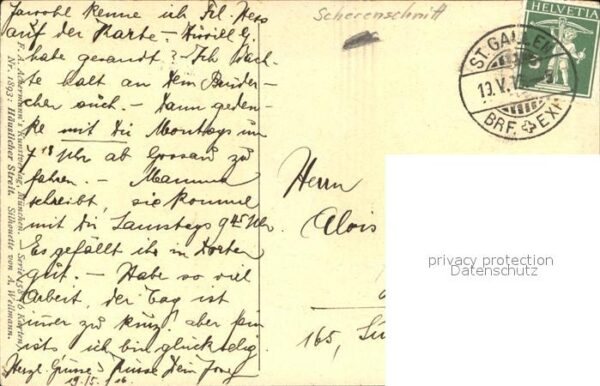 Jawohl kenne ich Frl. Hess
auf der Karte –
habe gesandt? Ich
halt an dem
auch. – Dann geden-
ke mit Dir Montags um
7 18 Uhr ab Gossau zu
fahren. – Mamma
schreibt, sie komme
mit Dir Samstags 9 45 Uhr.
Es gefällt ihr in
gut. – Habe so viel
Arbeit, der Tag ist
immer zu kurz, aber
ich bin glückselig.
Herzl. Grüsse & Küsse Dein
19./5. 16.
F. A. Ackermann's Kunstverlag, München. Serie 158 (6 Karten)
Nr. 1893: Häuslicher Streit. Silhouette von A. Wellmann.
Scherenschnitt
HELVETIA
5
ST. GALLEN
19.V.
BRF. EXP.
Herrn
Alois
165,
privacy protection
Datenschutz